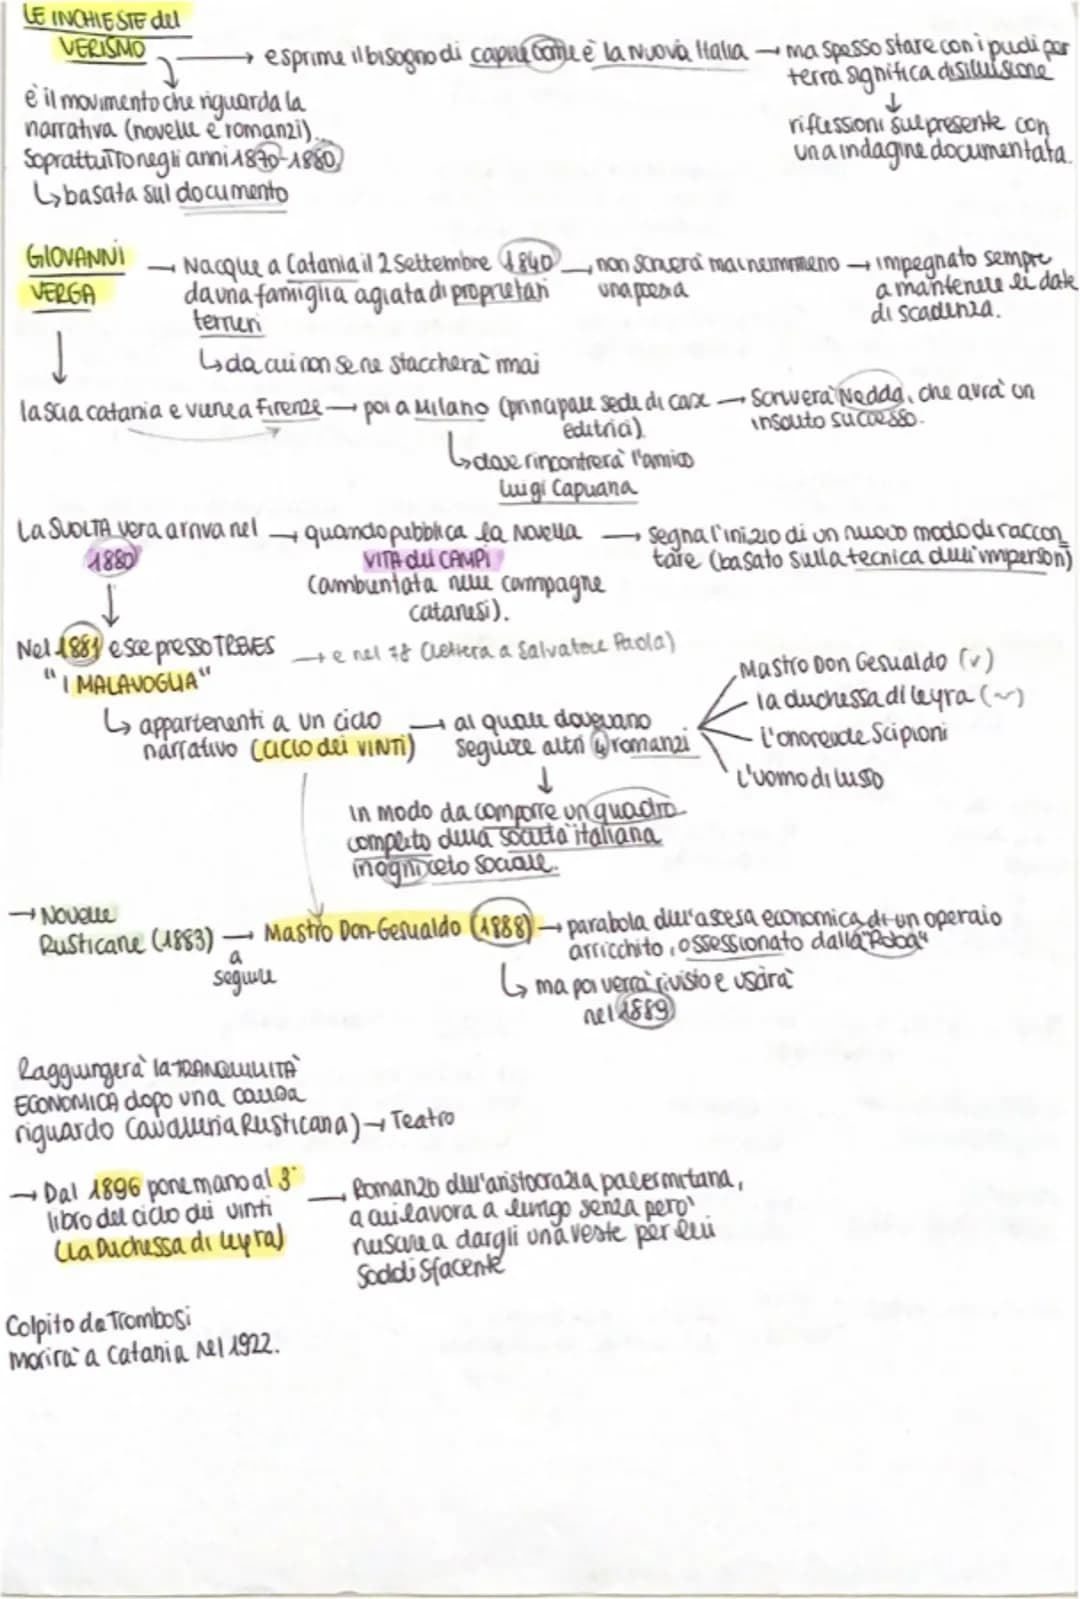 LE INCHIESTE del
VERISMO → esprime il bisogno di capire come è la Nuova Italia → ma spesso stare con i piedi per
terra significa disillusione
è il movimento che riguarda la
narrativa (novelle e romanzi)
Soprattutto negli anni 1870-1880
↳ basata sul documento
↓
riflessioni sul presente con
una indagine documentata.
GIOVANNI
VERGA
→ Nacque a Catania il 2 Settembre 1840
da una famiglia agiata di proprietari
terrieri
↳ da cui non se ne staccherà mai
→ non scriverà mai nemmeno
una poesia
→ impegnato sempre
a mantenere le date
di scadenza.
↓
lascia catania e viene a Firenze → poi a Milano (principale sede di case
editrici)
→ Scriverà Nedda, che avrà un
insolito successo.
↳ dove rincontrerà l'amico
Luigi Capuana
La SVOLTA vera arriva nel
1880
→ quando pubblica la Novella
VITA dei CAMPI
(ambientata nelle campagne
catanesi).
→ Segna l'inizio di un nuovo modo di raccon
tare (basato sulla tecnica dell'imperson)
↓
Nel 1881 esce presso TREVES
"I MALAVOGLIA"
→ e nel 78 (lettera a Salvatore Paola)
↳ appartenenti a un ciclo
narrativo (CICLO dei VINTI)
→ al quale dovevano
seguire altri 4 romanzi
Mastro Don Gesualdo (v)
la duchessa di leyra (~)
L'onorevole Scipioni
L'uomo di lusso
↓
in modo da comporre un quadro
completo della società italiana
in ogni ceto sociale.
→ Novelle
Rusticane (1883) → Mastro Don-Gesualdo (1888) → parabola dell'ascesa economica di un operaio
arricchito, ossessionato dalla "Roba"
a
seguire
↳ ma poi verrà rivisto e uscirà
nel 1889
Raggiungerà la TRANQUILLITÀ
ECONOMICA dopo una causa
riguardo Cavalleria Rusticana) → Teatro
→ Dal 1896 pone mano al 3°
libro del ciclo dei vinti
(La Duchessa di leyra)
→ Romanzo dell'aristocrazia palermitana,
a cui lavora a lungo senza però
riuscire a dargli una veste per lui
Soddisfacente
Colpito da Trombosi
morirà a Catania nel 1922.